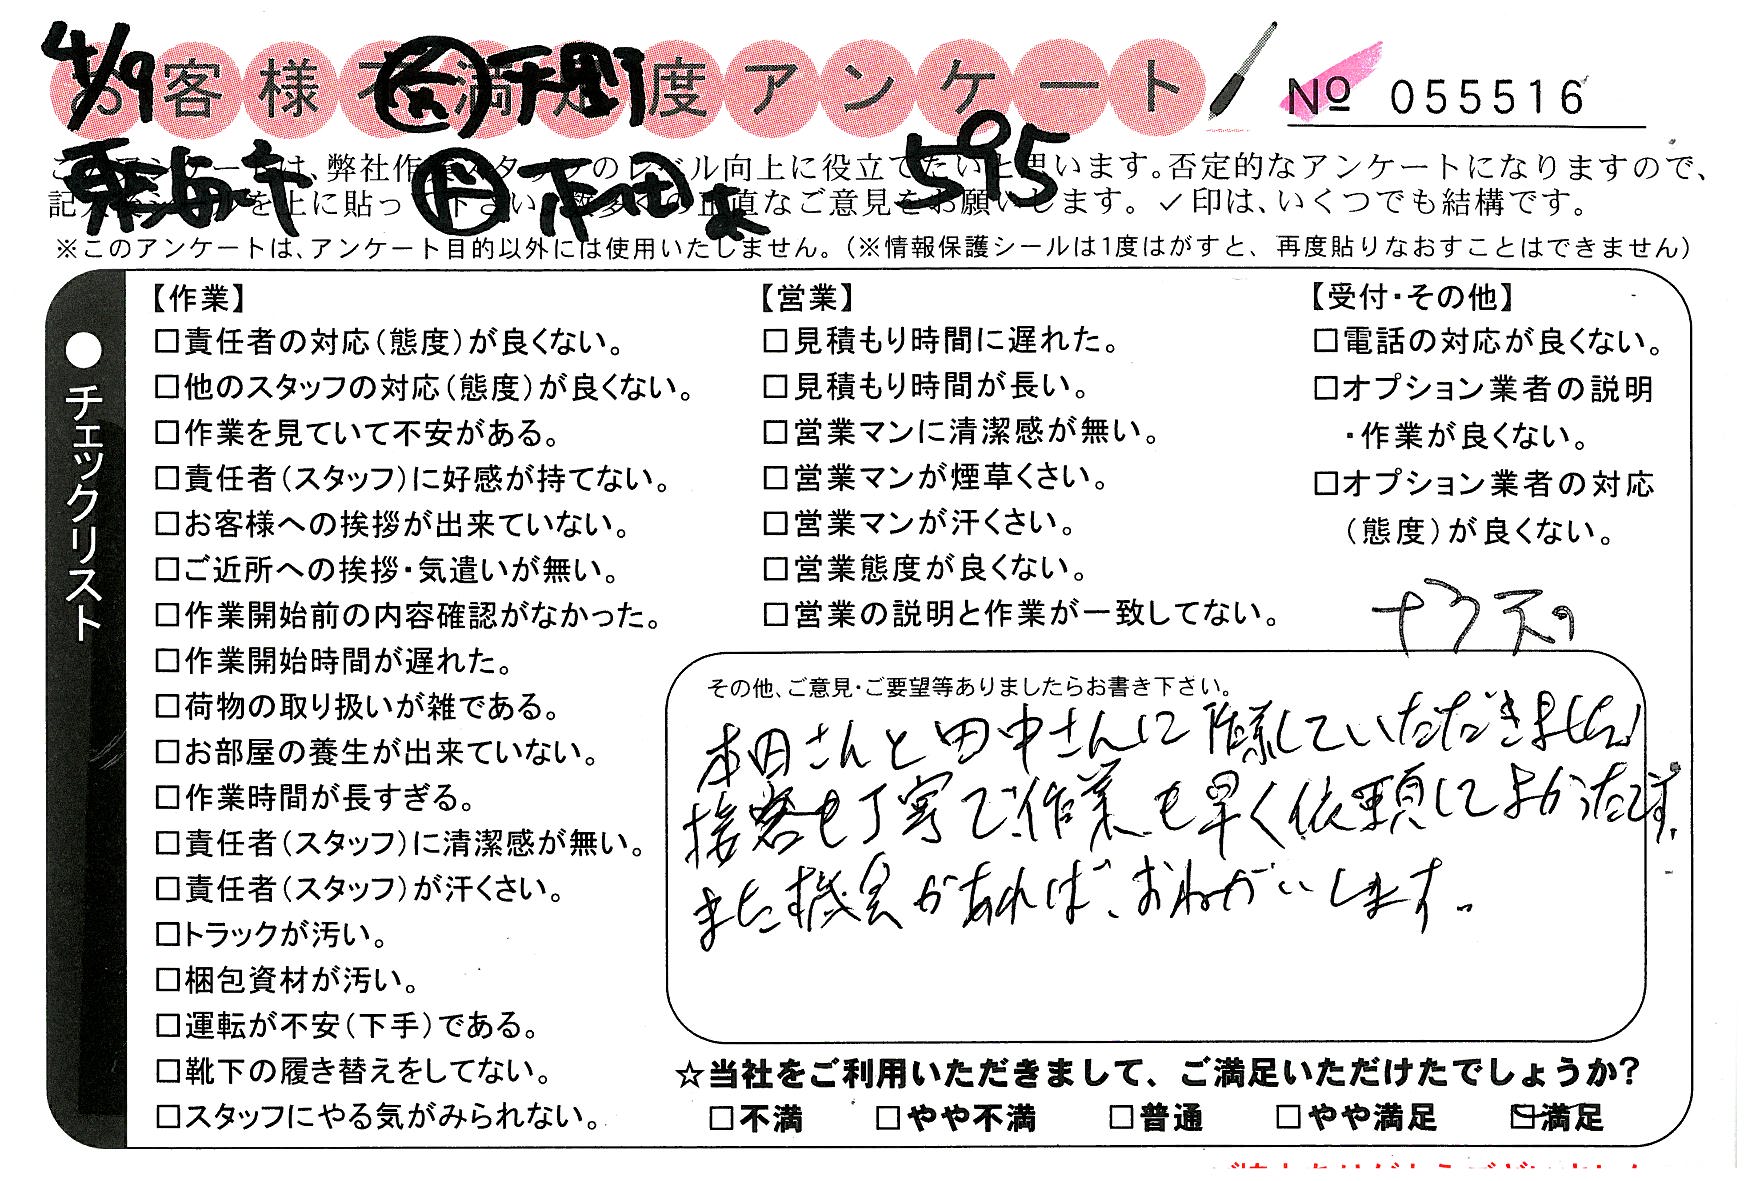 4/9 天野
お客様不満足度アンケート
No 055516
東海市 下 595
このアンケートは、弊社作業スタッフのレベル向上に役立てたいと思います。否定的なアンケートになりますので、
記入 シールを上に貼って下さい。数多くの正直なご意見をお願いします。✓印は、いくつでも結構です。
※このアンケートは、アンケート目的以外には使用いたしません。(※情報保護シールは1度はがすと、再度貼りなおすことはできません)
●チェックリスト
【作業】
□責任者の対応(態度)が良くない。
□他のスタッフの対応(態度)が良くない。
□作業を見ていて不安がある。
□責任者(スタッフ)に好感が持てない。
□お客様への挨拶が出来ていない。
□ご近所への挨拶・気遣いが無い。
□作業開始前の内容確認がなかった。
□作業開始時間が遅れた。
□荷物の取り扱いが雑である。
□お部屋の養生が出来ていない。
□作業時間が長すぎる。
□責任者(スタッフ)に清潔感が無い。
□責任者(スタッフ)が汗くさい。
□トラックが汚い。
□梱包資材が汚い。
□運転が不安(下手)である。
□靴下の履き替えをしてない。
□スタッフにやる気がみられない。
【営業】
□見積もり時間に遅れた。
□見積もり時間が長い。
□営業マンに清潔感が無い。
□営業マンが煙草くさい。
□営業マンが汗くさい。
□営業態度が良くない。
□営業の説明と作業が一致してない。
【受付・その他】
□電話の対応が良くない。
□オプション業者の説明
・作業が良くない。
□オプション業者の対応
(態度)が良くない。
その他、ご意見・ご要望等ありましたらお書き下さい。
本田さんと田中さんに作業していただきました!
接客も丁寧で、作業も早く依頼してよかったです。
また機会があれば、おねがいします。
☆当社をご利用いただきまして、ご満足いただけたでしょうか?
□不満 □やや不満 □普通 □やや満足 ☑満足